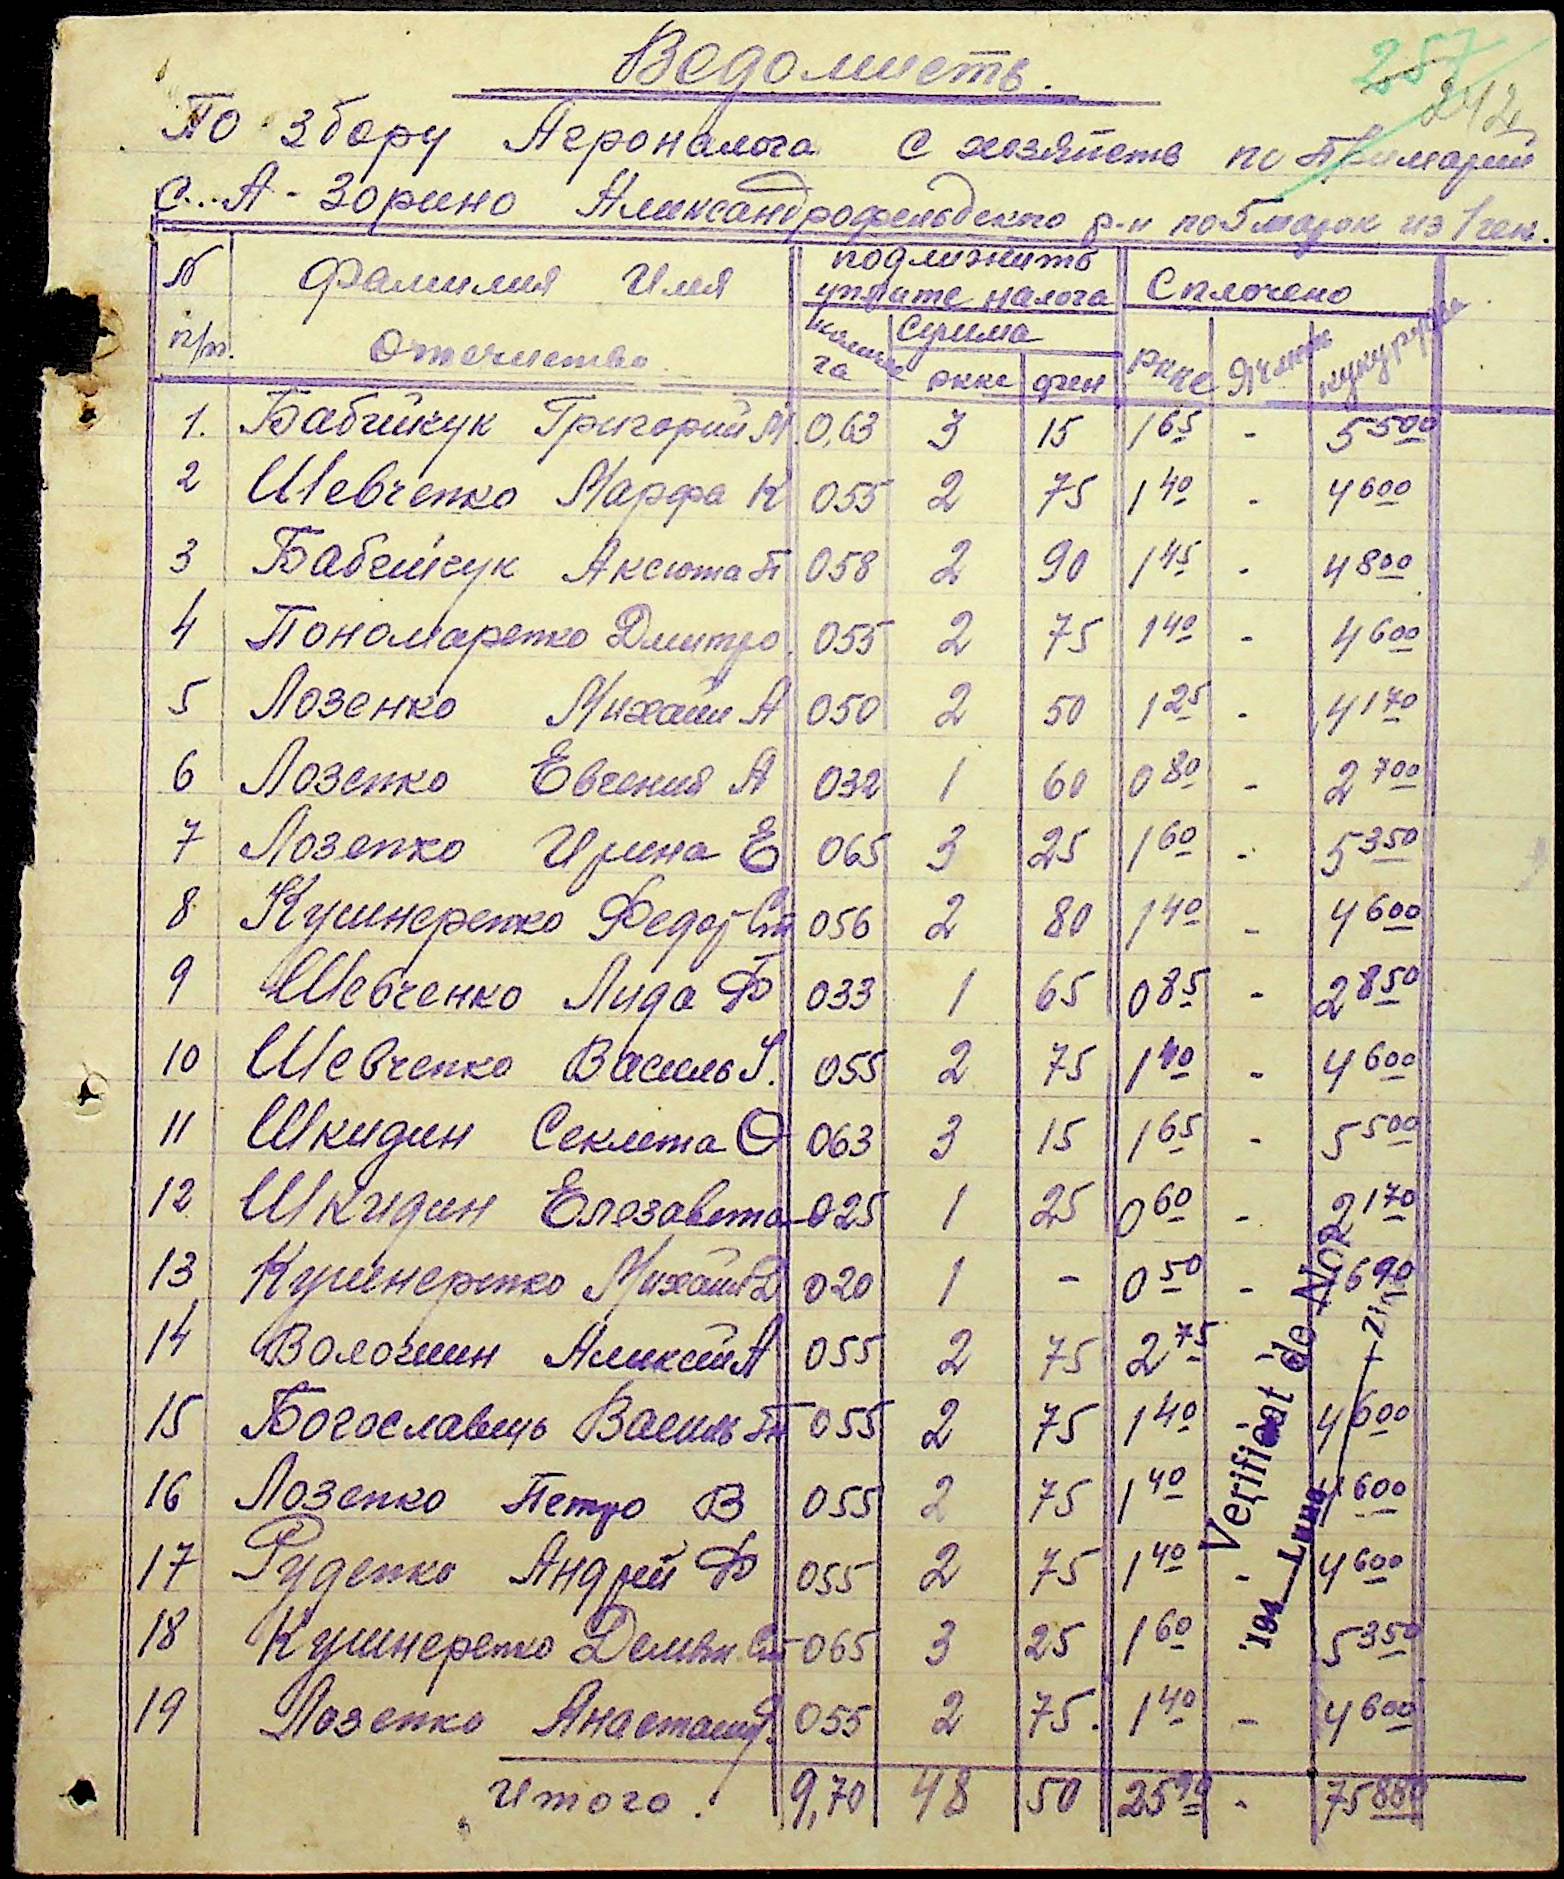 257
242
Ведомисть.
По збору Агроналога с хозяйств по Примарии
С... А-Зорино Александрофельдского р-н по 5 марок из 1 ген.
N фамилия Имя подлижить Сплочено
уплате налога
п/п. Отечиство га Сумма ркке Ячмень кукуруза
ркке фен
1. Бабийчук Григорий М 0,63 3 15 1 65 - 5 500
2 Шевченко Марфа К 055 2 75 1 40 - 4 600
3 Бабийчук Аксюта П 058 2 90 1 45 - 4 800
4 Пономаренко Дмитро 055 2 75 1 40 - 4 600
5 Лозенко Михаил А 050 2 50 1 25 - 4 170
6 Лозенко Евгения А 032 1 60 0 80 - 2 700
7 Лозенко Ирина Е 065 3 25 1 60 - 5 350
8 Кушнеренко Федор Ст 056 2 80 1 40 - 4 600
9 Шевченко Лида Ф 033 1 65 0 85 - 2 850
10 Шевченко Василь 055 2 75 1 40 - 4 600
11 Шкидин Секлета О 063 3 15 1 65 - 5 500
12 Шкидин Елезавета 025 1 25 0 60 - 2 170
13 Кушнеренко Михаил Д 020 1 - 0 50 - 1 690
14 Волошин Алексей А 055 2 75 2 75 - -
15 Богославець Василь 055 2 75 1 40 - 4 600
16 Лозенко Петро В 055 2 75 1 40 - 4 600
17 Руденко Андрей Ф 055 2 75 1 40 - 4 600
18 Кушнеренко Демьян Ст 065 3 25 1 60 5 350
19 Лозенко Анастасия 055 2 75. 1 40 - 4 600
Итого. 9,70 48 50 25 90 - 75 880
Verificat de NOR
194__ Luna ____ Ziua